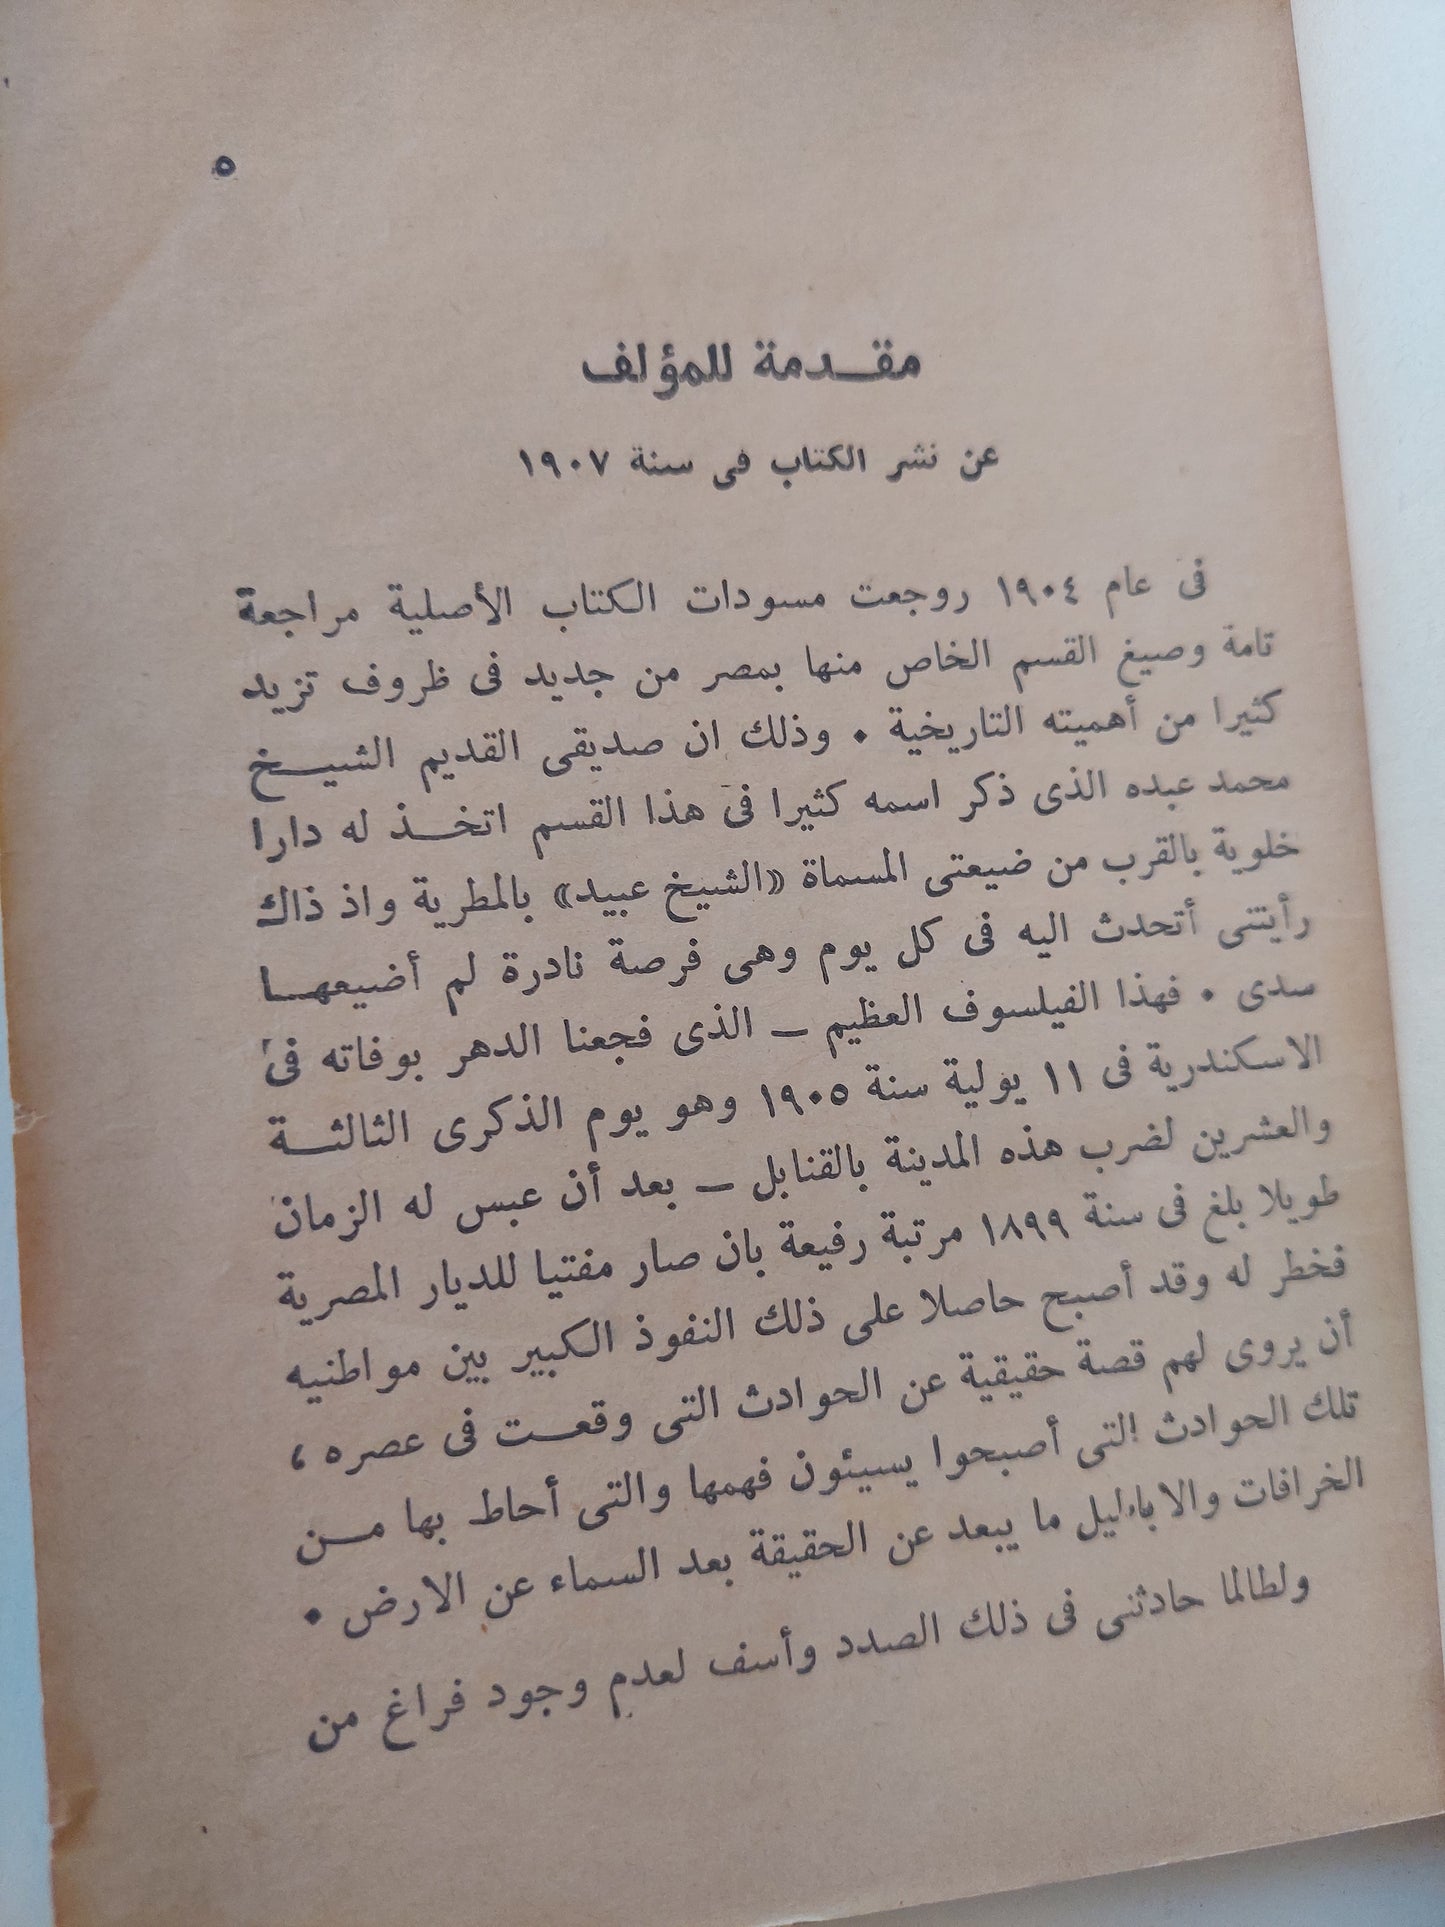 ٥
مقدمة للمؤلف
عن نشر الكتاب فى سنة ١٩٠٧
فى عام ١٩٠٤ روجعت مسودات الكتاب الأصلية مراجعة
تامة وصيغ القسم الخاص منها بمصر من جديد فى ظروف تزيد
كثيرا من أهميته التاريخية . وذلك ان صديقى القديم الشيخ
محمد عبده الذى ذكر اسمه كثيرا فى هذا القسم اتخذ له دارا
خلوية بالقرب من ضيعتى المسماة «الشيخ عبيد» بالمطرية واذ ذاك
رأيتنى أتحدث اليه فى كل يوم وهى فرصة نادرة لم أضيعها
سدى . فهذا الفيلسوف العظيم — الذى فجعنا الدهر بوفاته فى
الاسكندرية فى ١١ يولية سنة ١٩٠٥ وهو يوم الذكرى الثالثة
والعشرين لضرب هذه المدينة بالقنابل — بعد أن عبس له الزمان
طويلا بلغ فى سنة ١٨٩٩ مرتبة رفيعة بان صار مفتيا للديار المصرية
فخطر له وقد أصبح حاصلا على ذلك النفوذ الكبير بين مواطنيه
أن يروى لهم قصة حقيقية عن الحوادث التى وقعت فى عصره ،
تلك الحوادث التى أصبحوا يسيئون فهمها والتى أحاط بها من
الخرافات والاباطيل ما يبعد عن الحقيقة بعد السماء عن الارض .
ولطالما حادثنى فى ذلك الصدد وأسف لعدم وجود فراغ من